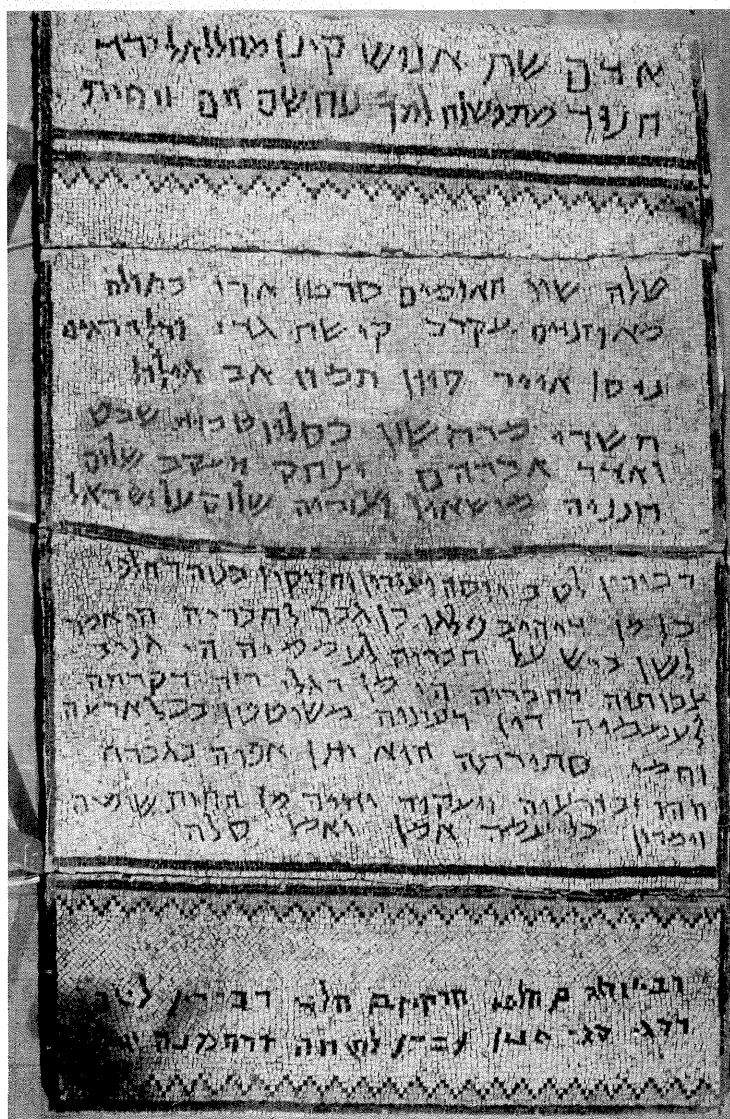 אדם שת אנוש קינן מהללאל ירד
חנוך מתושלח למך נח שם חם ויפת
טלה שור תאומים סרטן ארי בתולה
מאוזניים עקרב קשת גדי ודלי דגים
ניסן אייר סיון תמוז אב אילול
תשרי מרחשון כסליו טבית שבט
ואדר אברהם יצחק ויעקב שלום
חנניה מישאיל ועזריה שלום על ישראל
דכירין לטב יוסה ועזרין וחזיקיו בנוה דחלפי
כל מן דיהיב פלגו בן גבר לחבריה הי אמר
לשן ביש על חבריה לעממיה הי גניב
צבותיה דחבריה הי מן דגלי רזיה דקרתה
לעממיה דין דעינוה משוטטן בכל ארעה
וחמי סתירתה הוא יתן אפוה בגברה
ההו ובזרעיה ויעקור יתיה מן תחות שומיה
וימרון כל עמה אמן ואמן סלה
רבי יוסה בן חלפי חזקיו בן חלפי דכירין לטב
סגי הנון עבדו לשמה דרחמנה